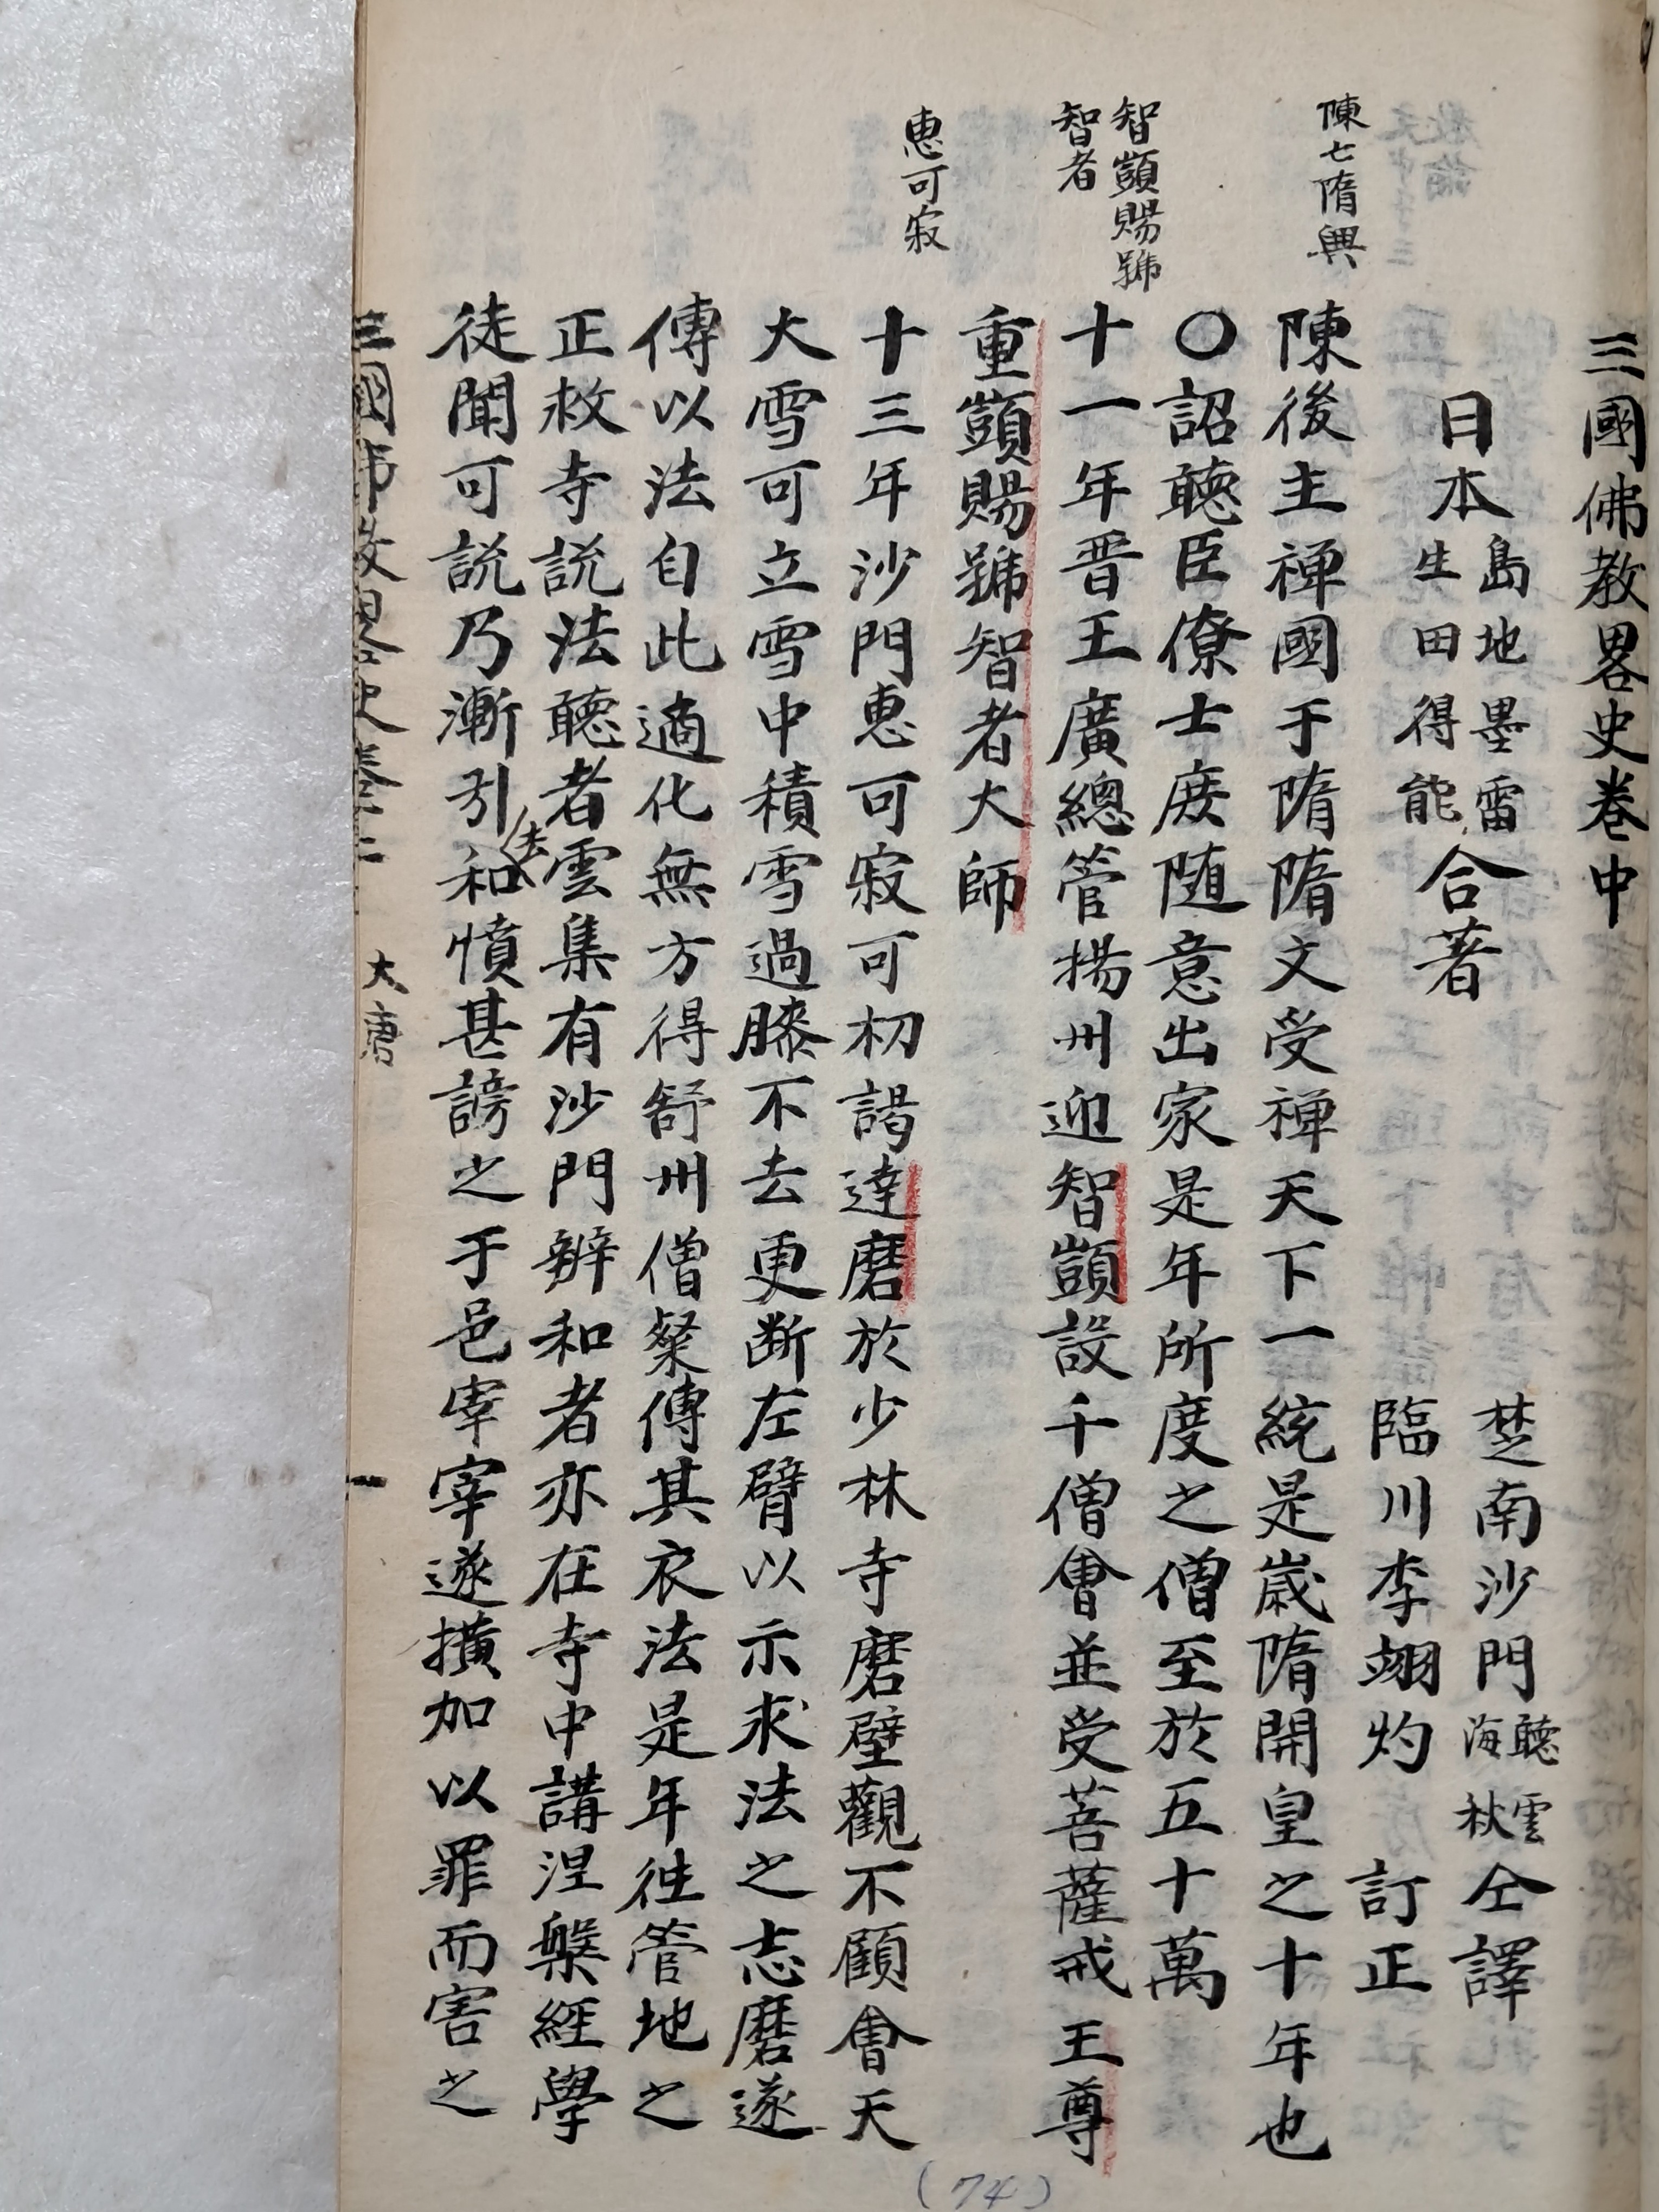 三國佛教畧史卷中
日本島地墨雷生田得能合著
楚南沙門聽雲海秋仝譯
臨川李翊灼訂正
陳亡隋興
陳後主禅國于隋隋文受禅天下一統是歲隋開皇之十年也
〇詔聽臣僚士庶随意出家是年所度之僧至於五十萬
智顗賜號
智者
十一年晋王廣總管揚州迎智顗設千僧會並受菩薩戒王尊
重顗賜號智者大師
惠可寂
十三年沙門惠可寂可初謁達磨於少林寺磨壁觀不顧會天
大雪可立雪中積雪過膝不去更断左臂以示求法之志磨遂
傳以法自此適化無方得舒州僧粲傳其衣法是年往管地之
正救寺説法聽者雲集有沙門辨和者亦在寺中講涅槃經學
徒聞可説乃漸引去和憤甚謗之于邑宰宰遂擯加以罪而害之
三國佛教畧史卷二 大唐 一
(74)